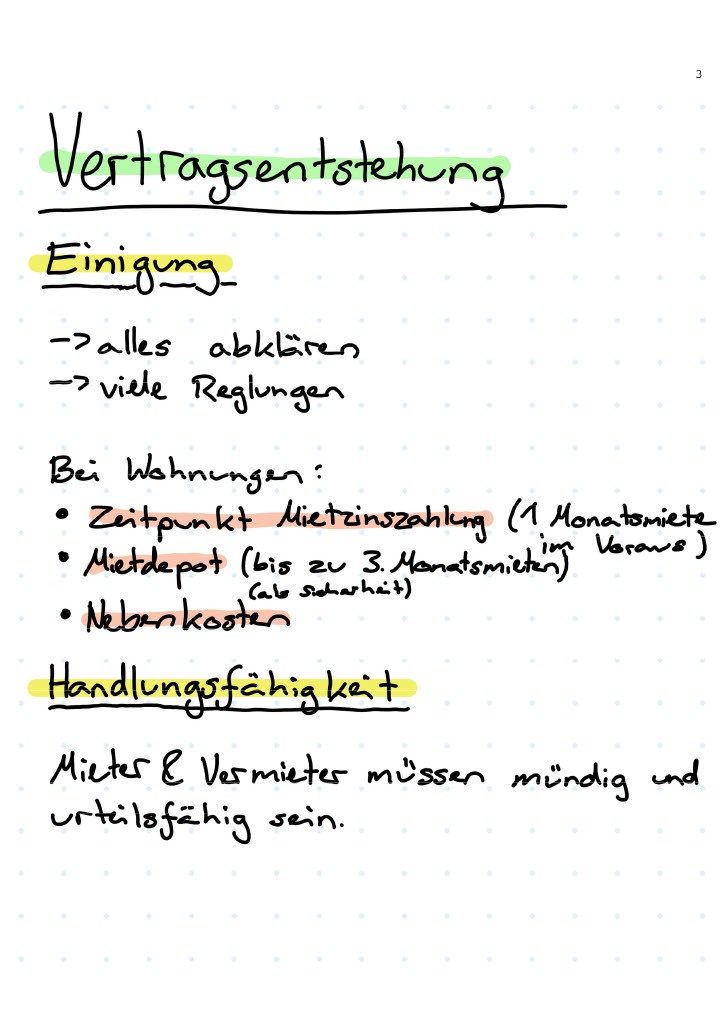 3
Vertragsentstehung
Einigung
-> alles abklären
-> viele Reglungen
Bei Wohnungen:
• Zeitpunkt Mietzinszahlung (1 Monatsmiete
im Voraus)
• Mietdepot (bis zu 3. Monatsmieten)
(als sicherheit)
• Nebenkosten
Handlungsfähigkeit
Mieter & Vermieter müssen mündig und
urteilsfähig sein.